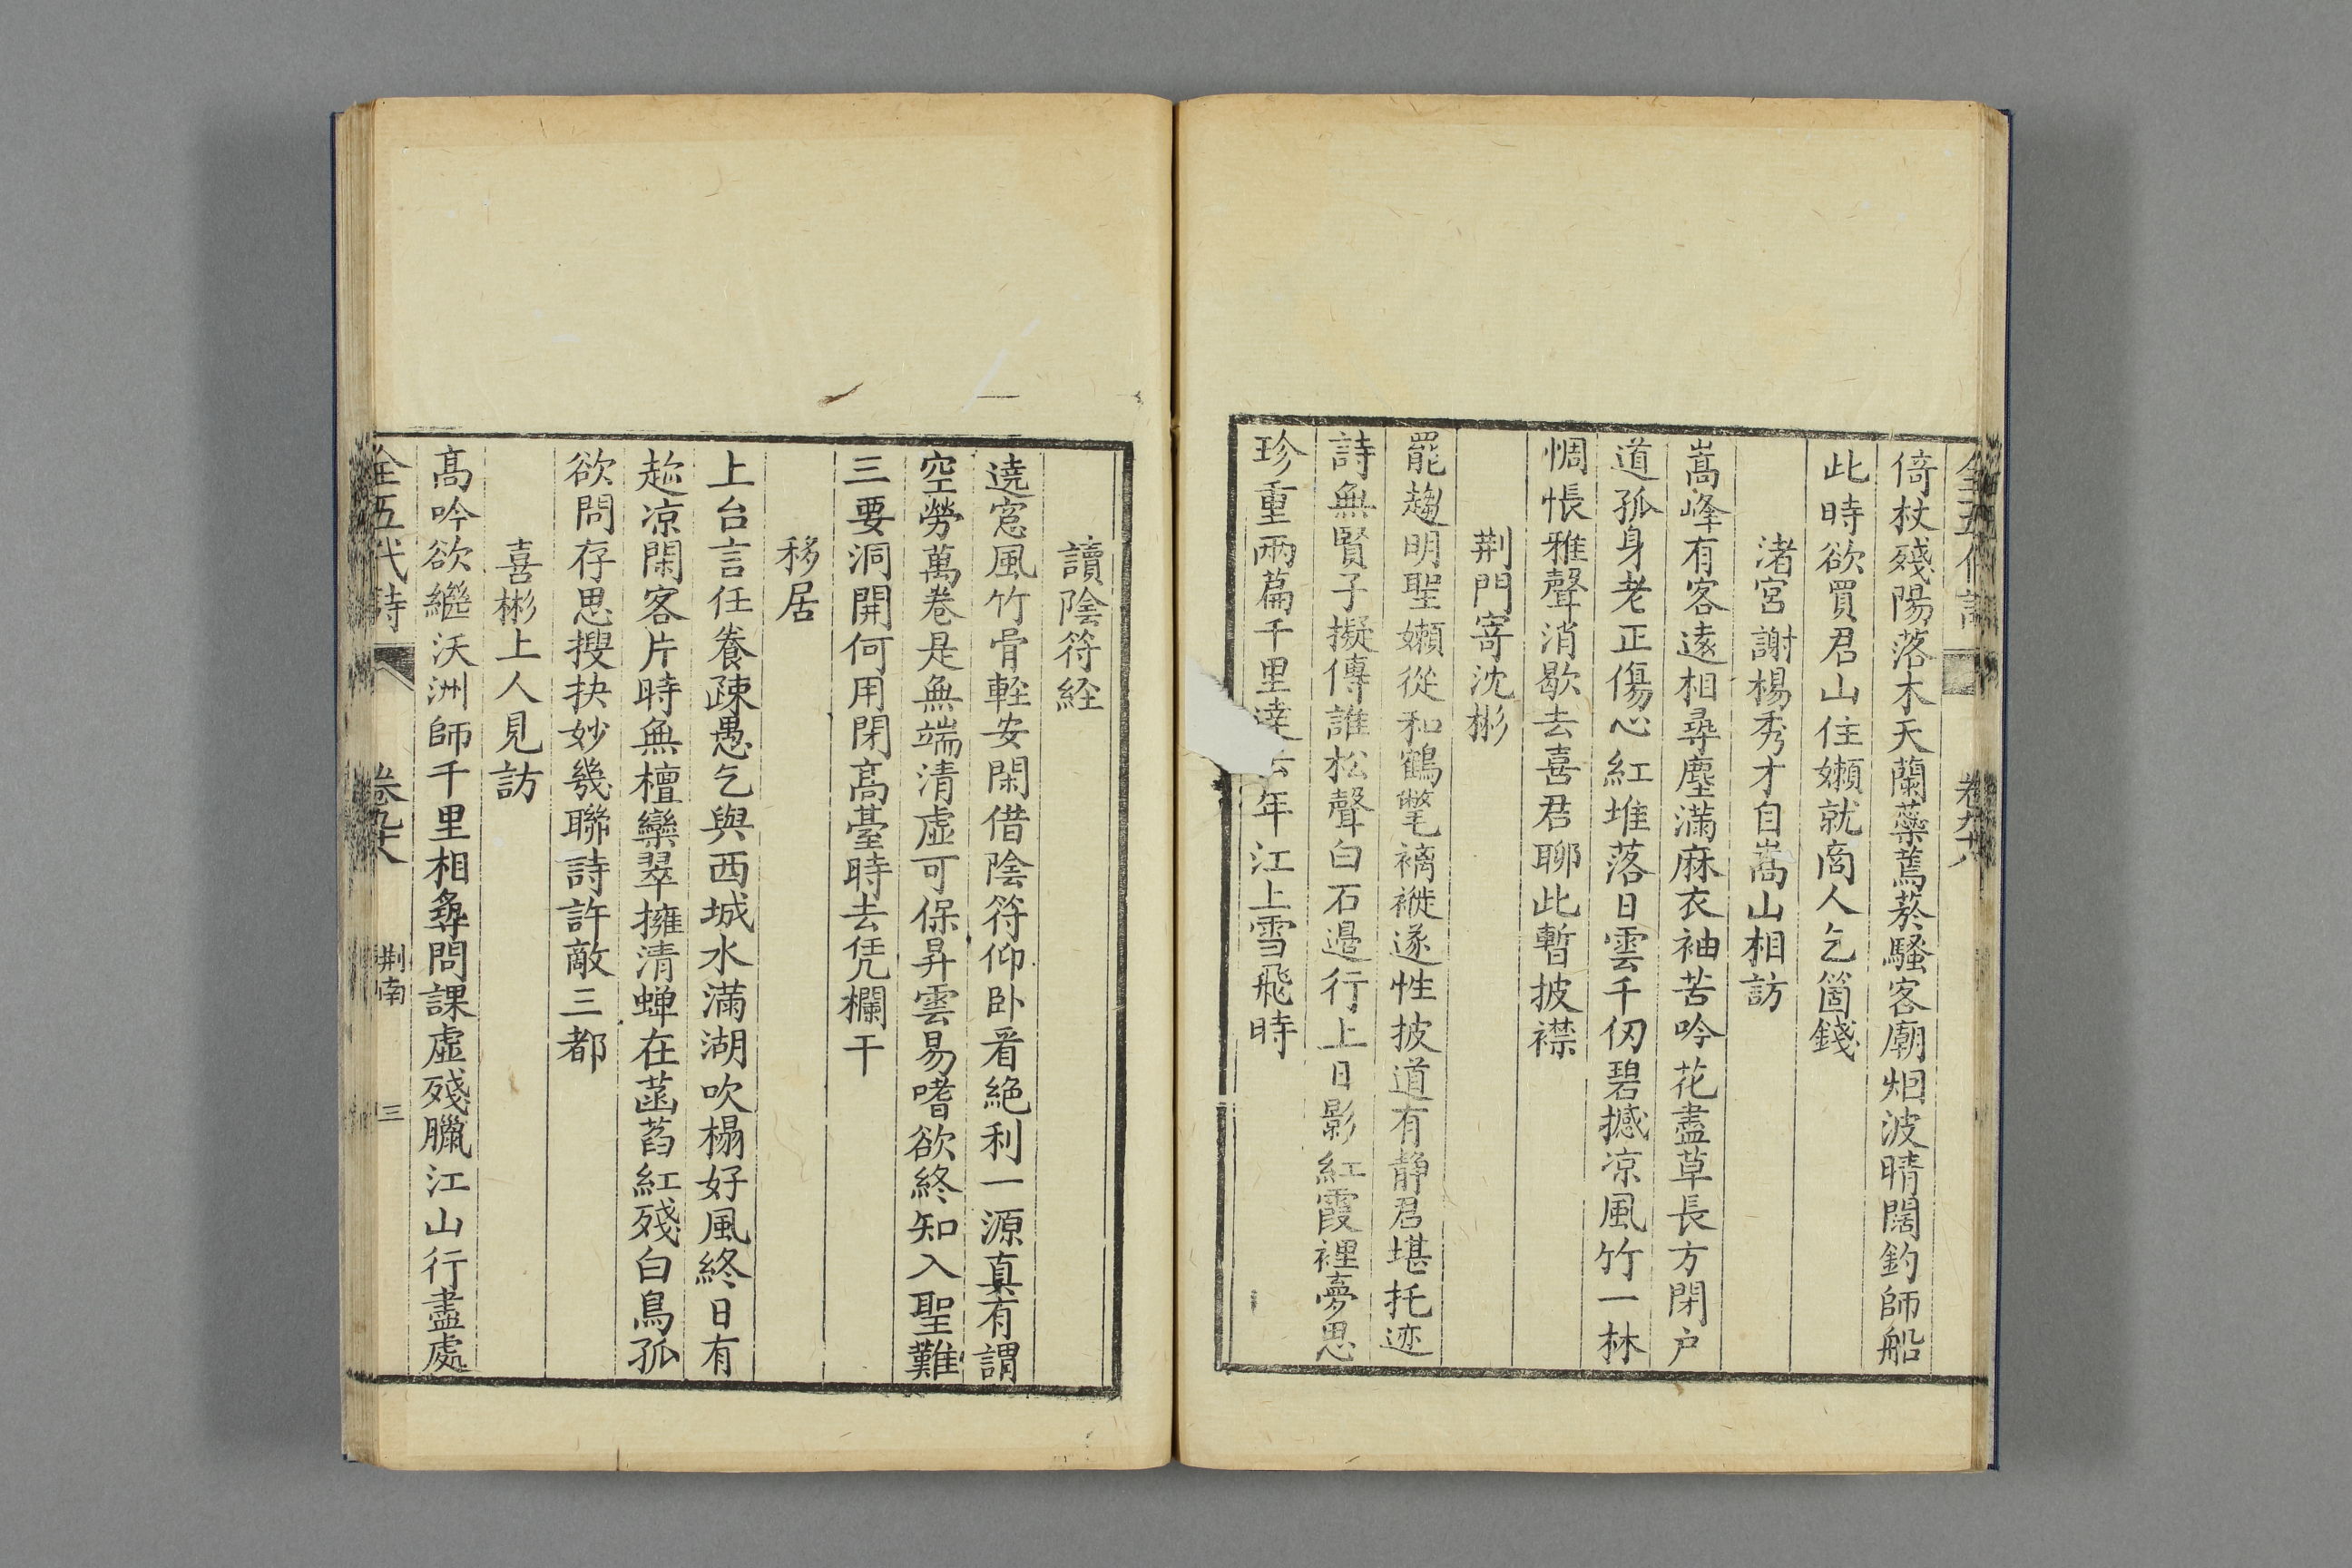 全五代詩 卷九十八
倚杖殘陽落木天蘭蘂蔫菸騷客廟烟波晴闊釣師船
此時欲買君山住嬾就商人乞箇錢
渚宮謝楊秀才自嵩山相訪
嵩峰有客遠相尋塵滿麻衣袖苦吟花盡草長方閉户
道孤身老正傷心紅堆落日雲千仞碧撼凉風竹一林
惆悵雅聲消歇去喜君聊此暫披襟
荆門寄沈彬
罷趨明聖嬾從和鶴氅褵褷遂性披道有静君堪托迹
詩無賢子擬傳誰松聲白石邉行止日影紅霞裡夢思
珍重兩篇千里達去年江上雪飛時
讀陰符経
遶窓風竹骨輕安閑借陰符仰卧看絶利一源真有謂
空勞萬卷是無端清虛可保昇雲易嗜欲終知入聖難
三要洞開何用閉髙臺時去凭欄干
移居
上台言任養疎愚乞與西城水滿湖吹榻好風終日有
趂凉閑客片時無檀欒翠擁清蟬在菡萏紅殘白鳥孤
欲問存思搜抉妙幾聯詩許敵三都
喜彬上人見訪
髙吟欲繼沃洲師千里相尋問課虛殘臘江山行盡處
全五代詩 卷九十八 荆南 三